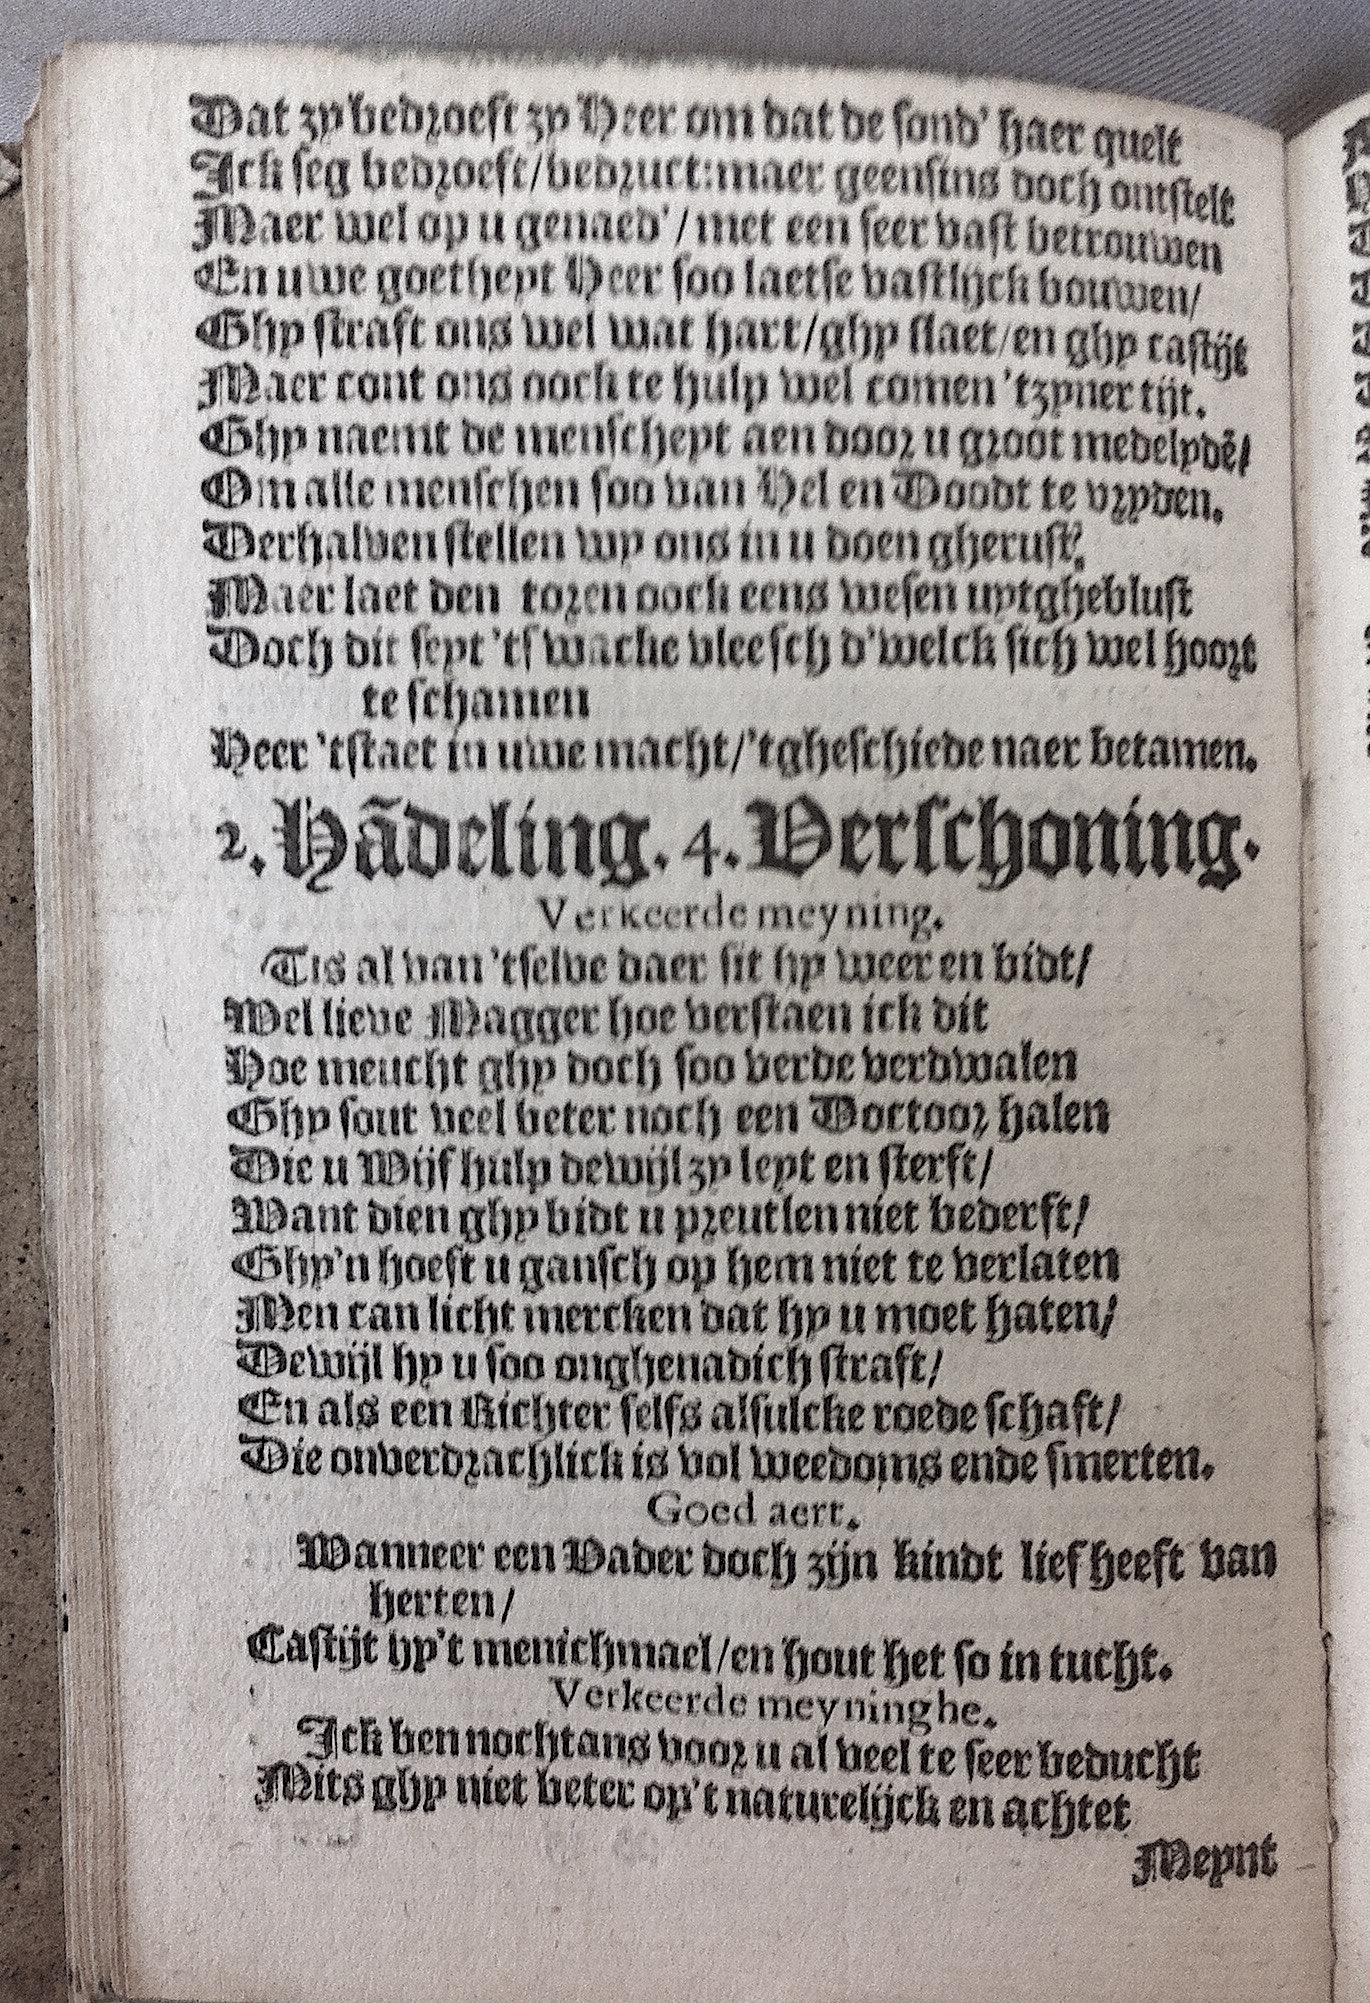 Dat zy bedroeft zy Heer om dat de sond' haer quelt
Ick seg bedroeft/bedruct:maer geensins doch ontstelt
Maer wel op u genaed'/met een seer vast betrouwen
En uwe goetheyt Heer soo laetse vastlijck bouwen/
Ghy straft ons wel wat hart/ghy slaet/en ghy castijt
Maer cont ons oock te hulp wel comen 'tzyner tijt.
Ghy naemt de menscheyt aen door u groot medelydē/
Om alle menschen soo van Hel en Doodt te vryden.
Derhalven stellen wy ons in u doen gherust?
Maer laet den toren oock eens wesen uytgheblust
Doch dit seyt 'ts wacke vleesch d'welck sich wel hoort
te schamen
Heer 'tstaet in uwe macht/'tgheschiede naer betamen.
2. Hādeling. 4. Verschoning.
Verkeerde meyning.
Tis al van 'tselve daer sit hy weer en bidt/
Wel lieve Magger hoe verstaen ick dit
Hoe meucht ghy doch soo verde verdwalen
Ghy sout veel beter noch een Doctoor halen
Die u Wijf hulp dewijl zy leyt en sterft/
Want dien ghy bidt u preutlen niet bederft/
Ghy'n hoeft u gansch op hem niet te verlaten
Men can licht mercken dat hy u moet haten/
Dewijl hy u soo onghenadich straft/
En als een Richter selfs alsulcke roede schaft/
Die onverdrachlick is vol weedoms ende smerten.
Goed aert.
Wanneer een Vader doch zijn kindt lief heeft van
herten/
Castijt hy't menichmael/en hout het so in tucht.
Verkeerde meyninghe.
Ick ben nochtans voor u al veel te seer beducht
Mits ghy niet beter op't naturelijck en achtet
Meynt